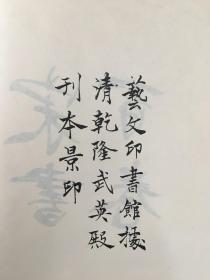 藝文印書館據
清乾隆武英殿
刊本景印